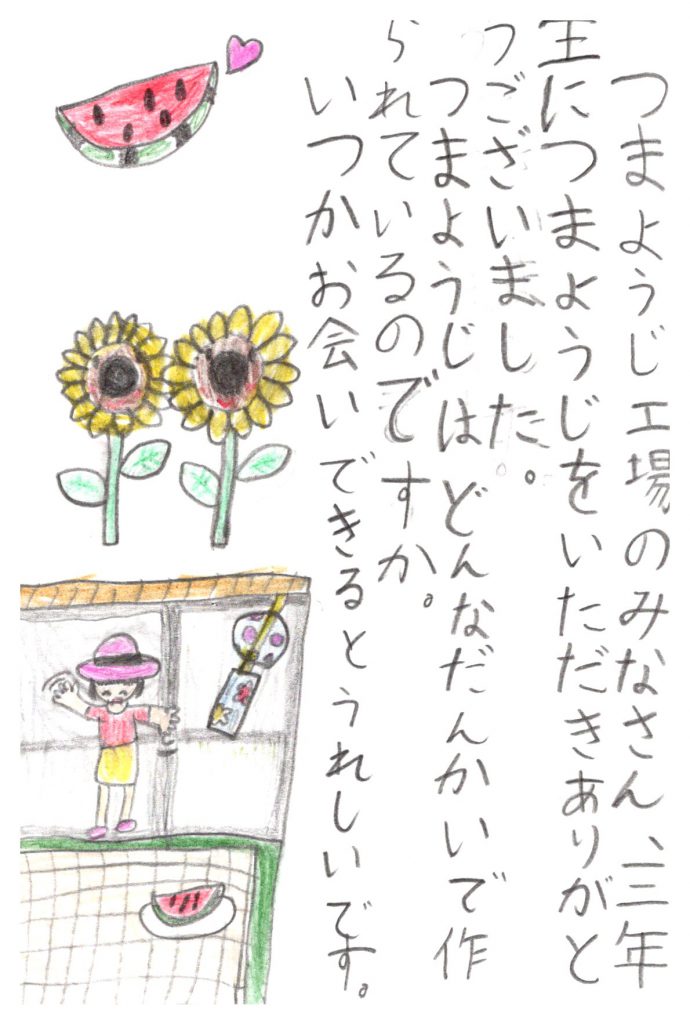 つまようじ工場のみなさん、三年
生につまようじをいただきありがと
うございました。
つまようじはどんなだんかいで作
られているのですか。
いつかお会いできるとうれしいです。